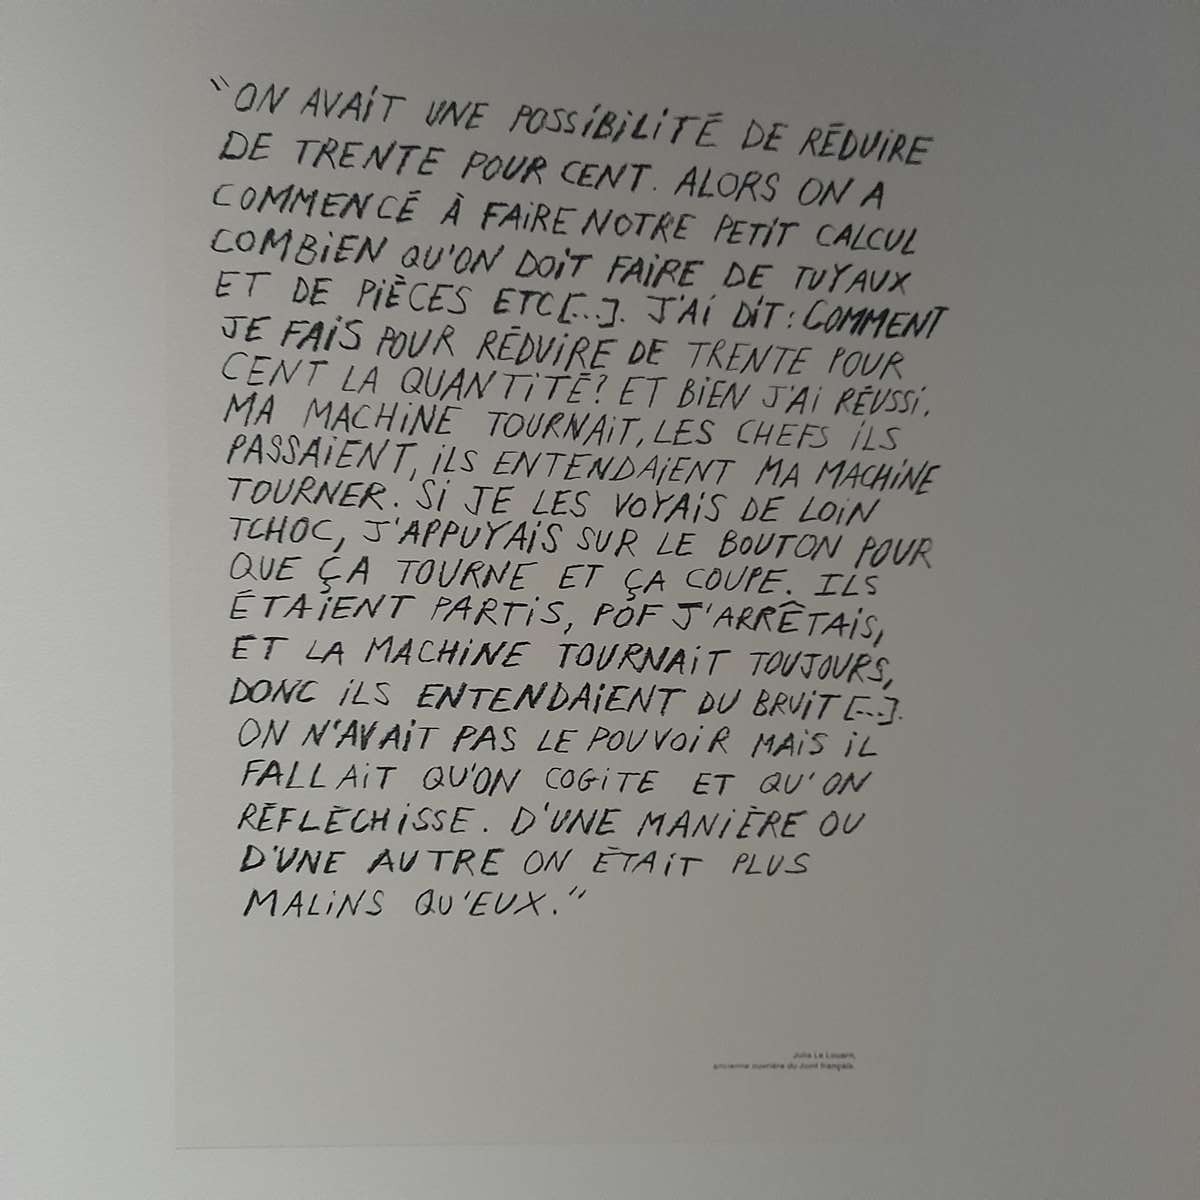 "ON AVAIT UNE POSSIBILITÉ DE RÉDUIRE
DE TRENTE POUR CENT. ALORS ON A
COMMENCÉ À FAIRE NOTRE PETIT CALCUL
COMBIEN QU'ON DOIT FAIRE DE TUYAUX
ET DE PIÈCES ETC[...]. J'AI DIT : COMMENT
JE FAIS POUR RÉDUIRE DE TRENTE POUR
CENT LA QUANTITÉ? ET BIEN J'AI RÉUSSI.
MA MACHINE TOURNAIT, LES CHEFS ILS
PASSAIENT, ILS ENTENDAIENT MA MACHINE
TOURNER. SI JE LES VOYAIS DE LOIN
TCHOC, J'APPUYAIS SUR LE BOUTON POUR
QUE ÇA TOURNE ET ÇA COUPE. ILS
ÉTAIENT PARTIS, POF J'ARRÊTAIS,
ET LA MACHINE TOURNAIT TOUJOURS,
DONC ILS ENTENDAIENT DU BRUIT [...].
ON N'AVAIT PAS LE POUVOIR MAIS IL
FALLAIT QU'ON COGITE ET QU'ON
RÉFLÉCHISSE. D'UNE MANIÈRE OU
D'UNE AUTRE ON ÉTAIT PLUS
MALINS QU'EUX."
Julia Le Louarn,
ancienne ouvrière du Joint français.